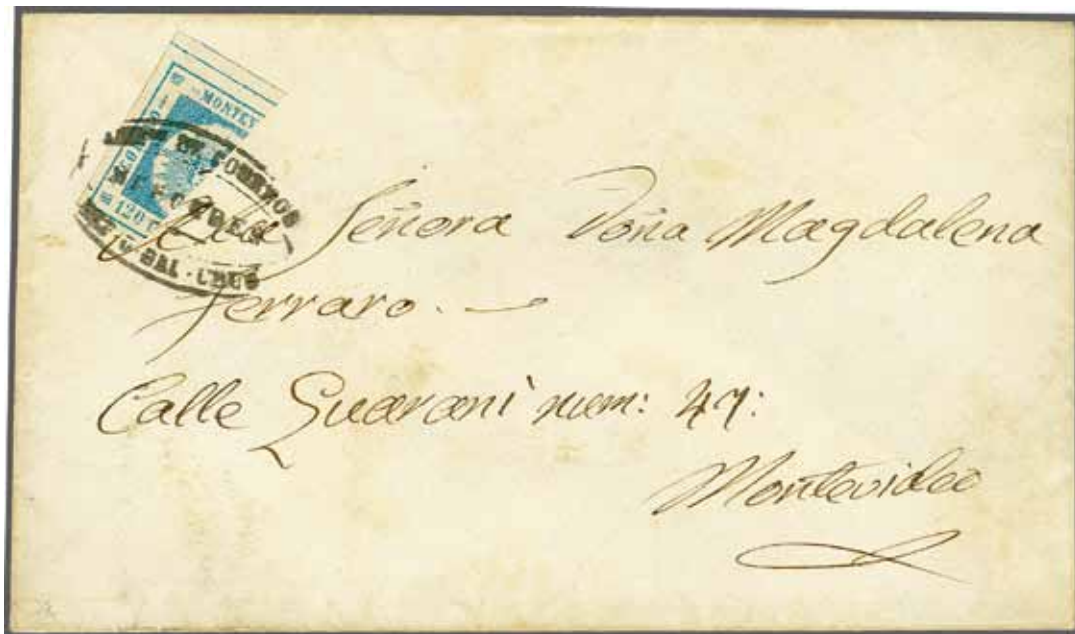 MONTEV
120
CORREOS
A la Señora Doña Magdalena
Ferraro.
Calle Guarani num: 47:
Montevideo